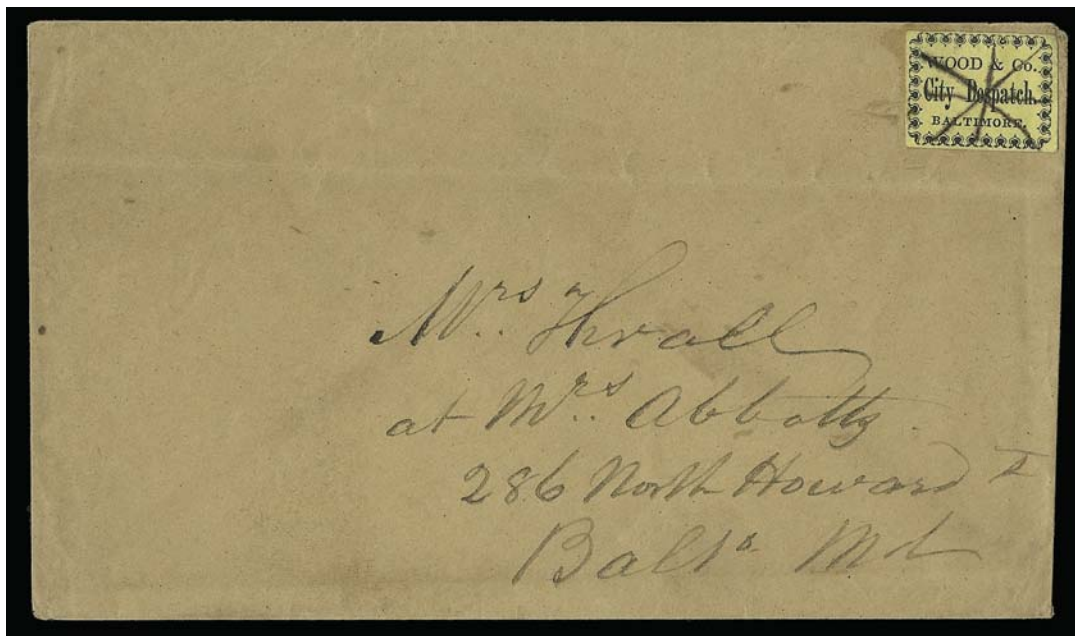 WOOD & Co.
City Despatch,
BALTIMORE.
Mrs. Thrall
at Mrs. Abbotts
286 North Howard
Balto Md